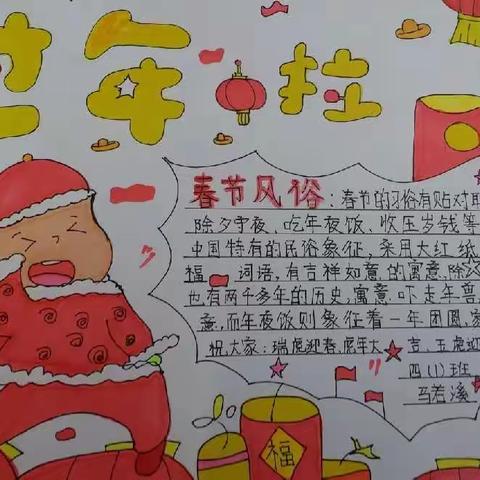 过年啦
春节风俗:春节的习俗有贴对联
除夕守夜、吃年夜饭、收压岁钱等
中国特有的民俗象征,采用大红纸
福 词语,有吉祥如意的寓意,除夕
也有两千多年的历史,寓意,吓走年兽
意,而年夜饭则象征着一年团圆,家
祝大家:瑞虎迎春,虎年大吉、五虎迎
四(1)班
马若溪
福